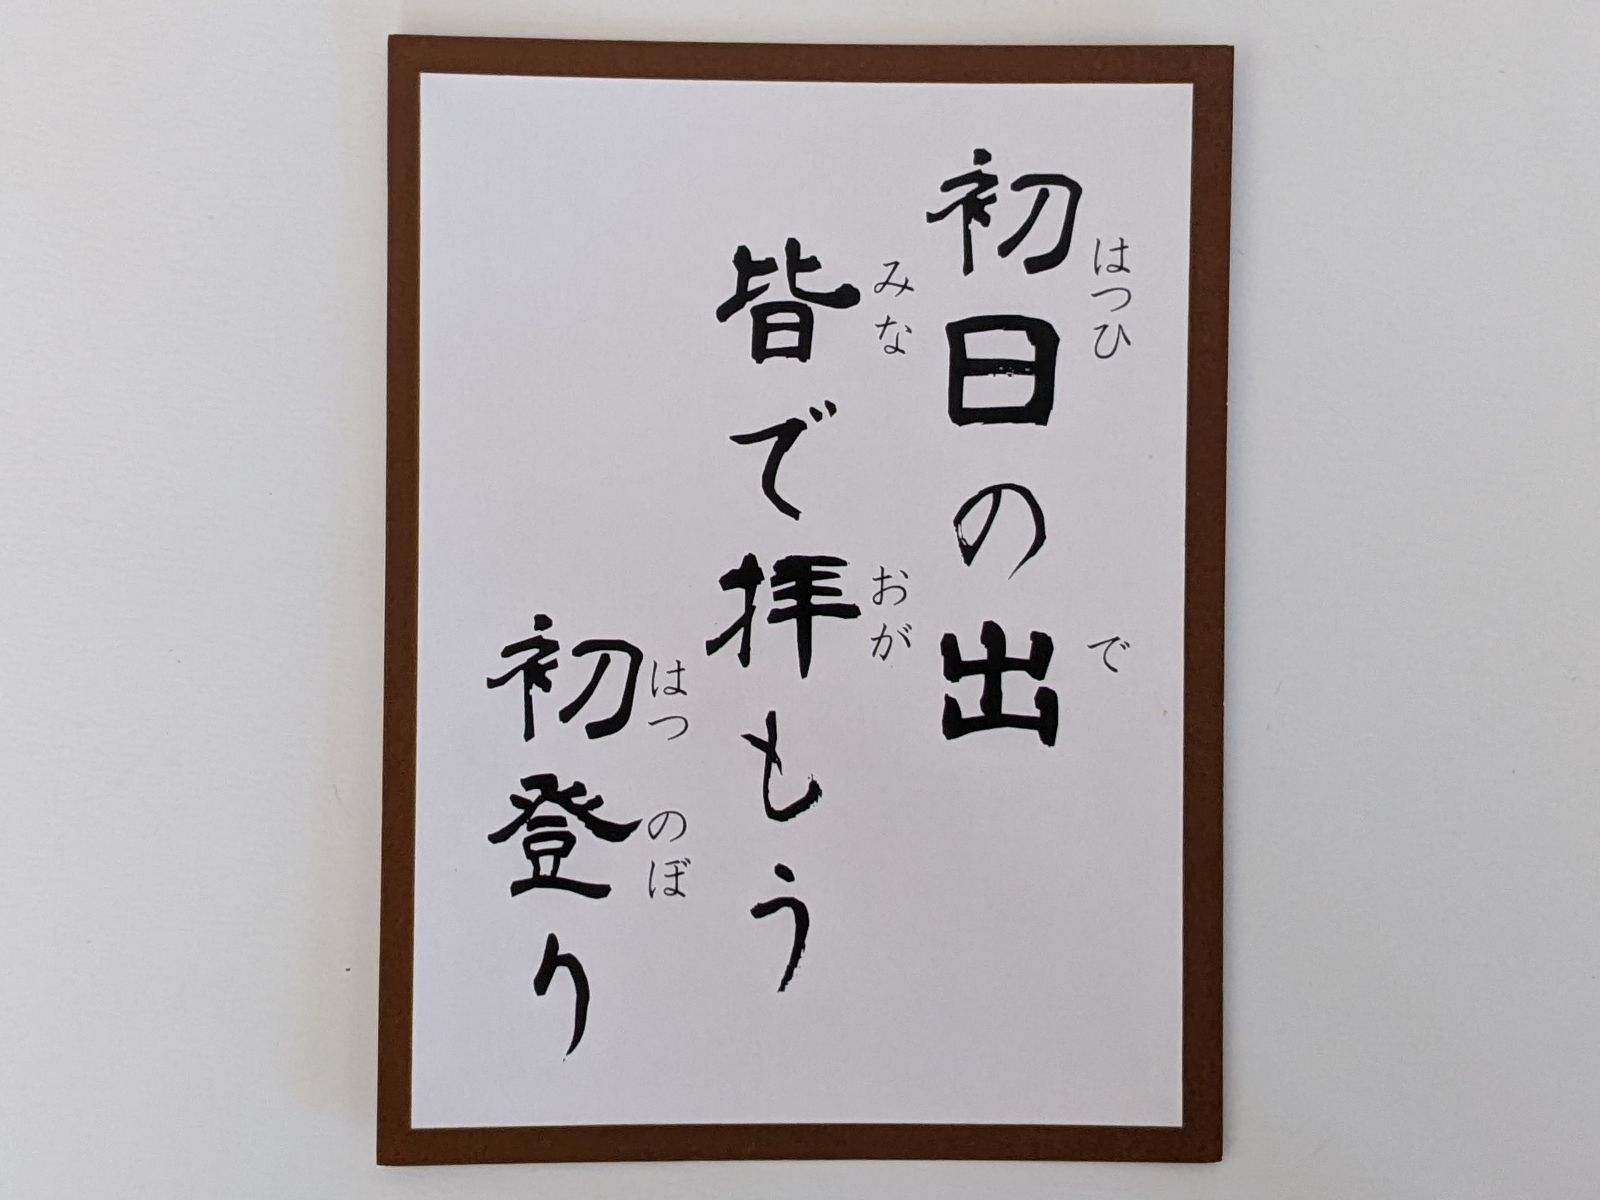 初日の出
はつひ で
皆で拝もう
みな おが
初登り
はつ のぼ